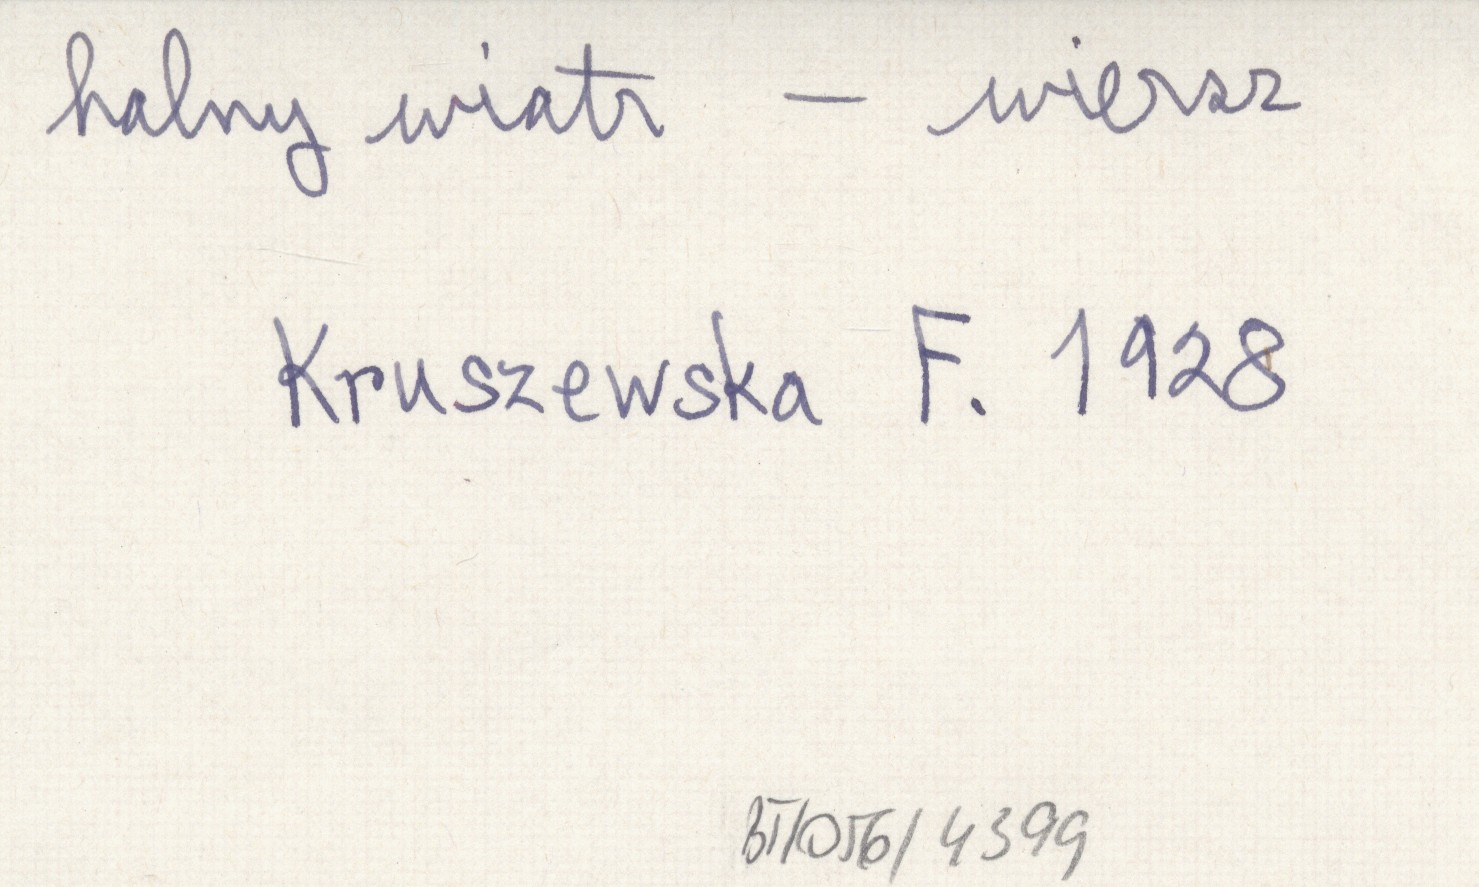 halny wiatr — wiersz
Kruszewska F. 1928
BT/056/4399